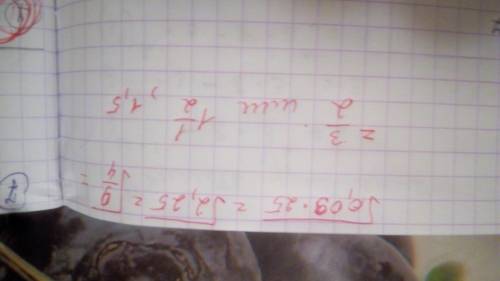 √0,09·25 = √2,25 = √9/4 =
= 3/2 или 1 1/2, 1,5